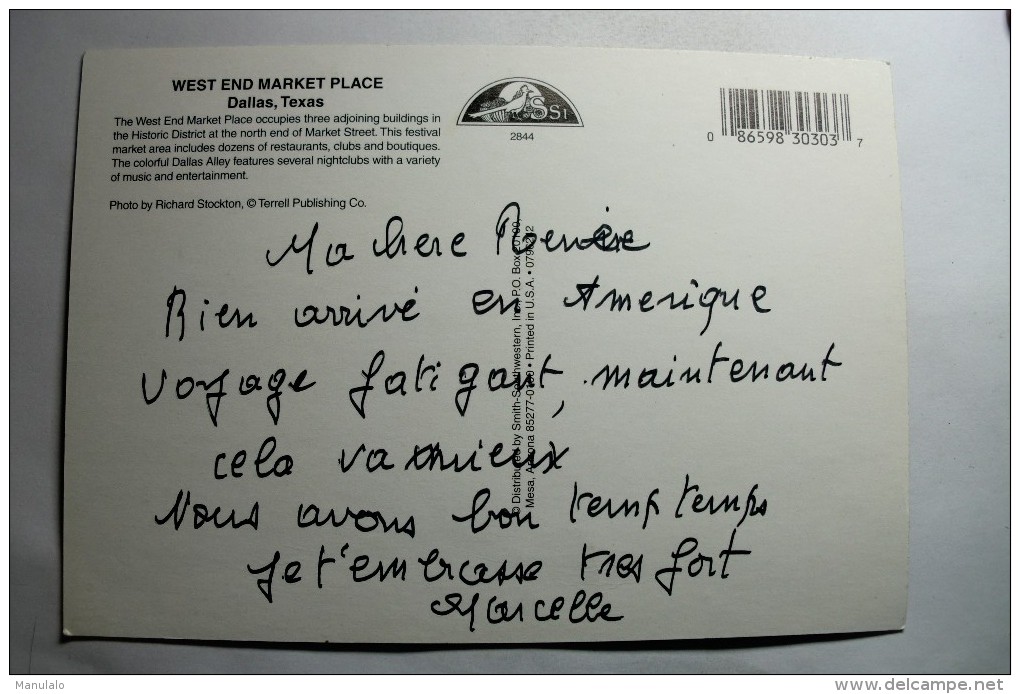 WEST END MARKET PLACE
Dallas, Texas
The West End Market Place occupies three adjoining buildings in
the Historic District at the north end of Market Street. This festival
market area includes dozens of restaurants, clubs and boutiques.
The colorful Dallas Alley features several nightclubs with a variety
of music and entertainment.
Photo by Richard Stockton, © Terrell Publishing Co.
SSI
2844
0 86598 30303 7
© Distributed by Smith-Southwestern, Inc., P.O. Box
Mesa, Arizona • Printed in U.S.A. •
Ma chere
Bien arrivé en Amerique
voyage fatigant, maintenant
cela va mieux
Nous avons bon temp temps
Je t'embrasse tres fort
Marcelle
Manulalo
www.delcampe.net